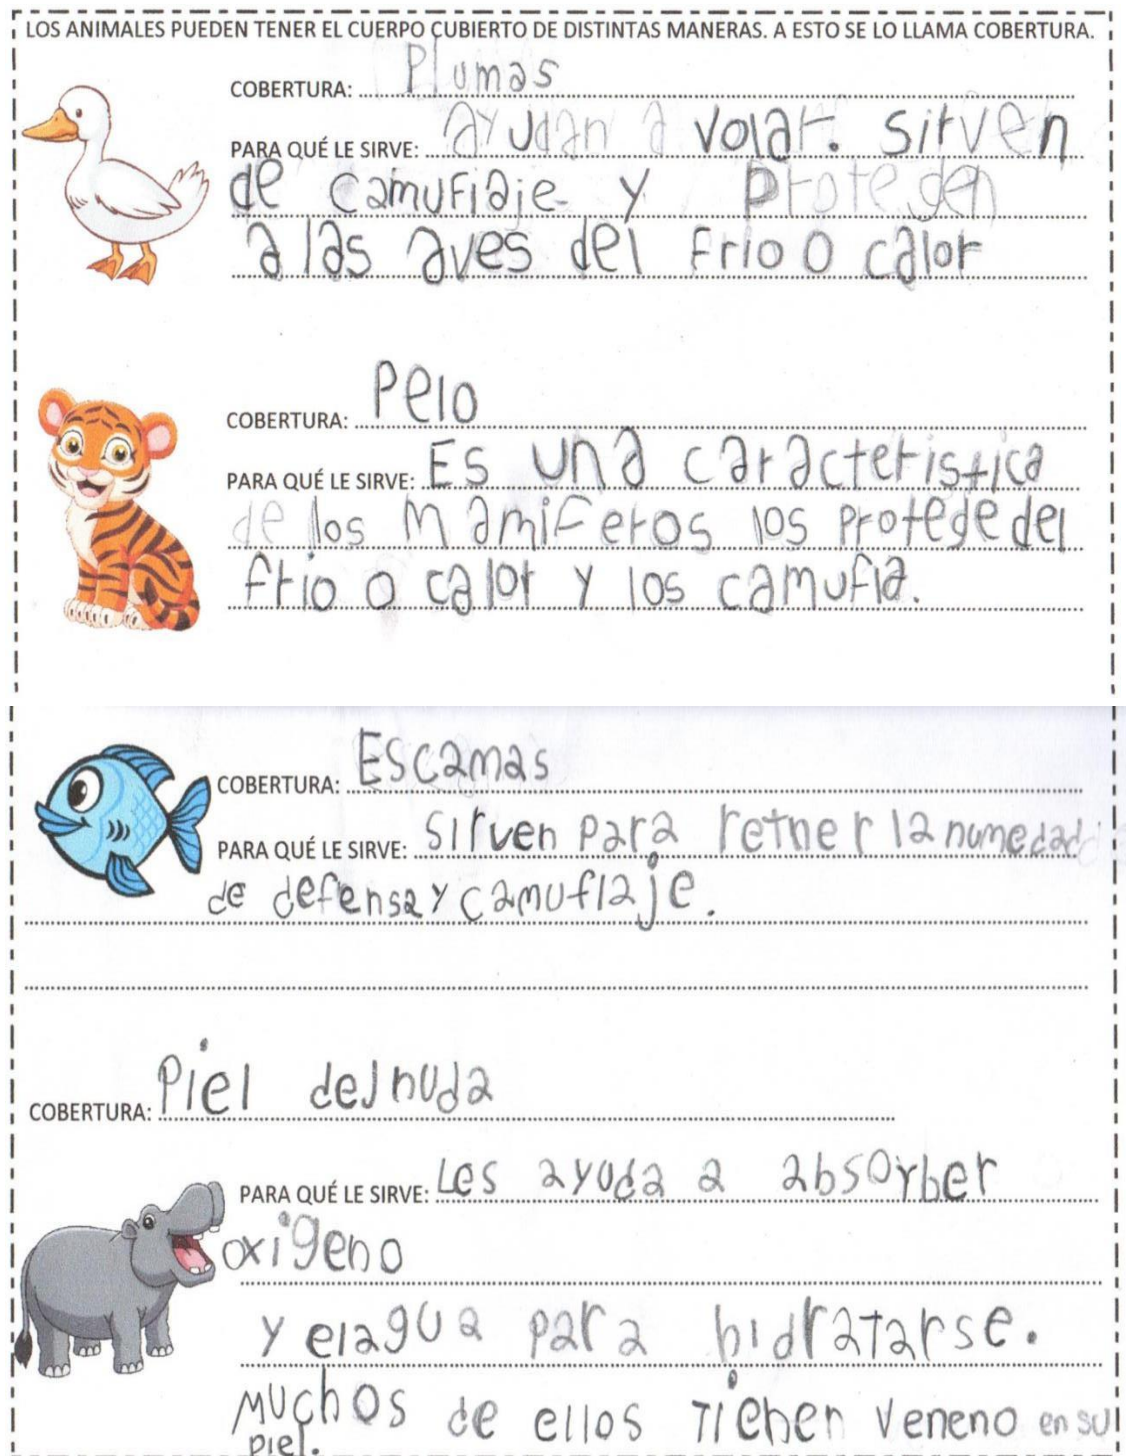 LOS ANIMALES PUEDEN TENER EL CUERPO CUBIERTO DE DISTINTAS MANERAS. A ESTO SE LO LLAMA COBERTURA.
COBERTURA: Plumas
PARA QUÉ LE SIRVE: ayudan a volar. Sirven
de camuflaje y Protegen
a las aves del Frio o calor
COBERTURA: Pelo
PARA QUÉ LE SIRVE: Es una caracteristica
de los mamiferos los Protege del
frio o calor y los camufla.
COBERTURA: Escamas
PARA QUÉ LE SIRVE: Sirven para retner la humedad
de defensa y camuflaje.
COBERTURA: Piel desnuda
PARA QUÉ LE SIRVE: Les ayuda a absorber
oxigeno
y el agua para hidratarse.
Muchos de ellos Tienen veneno en su
piel.